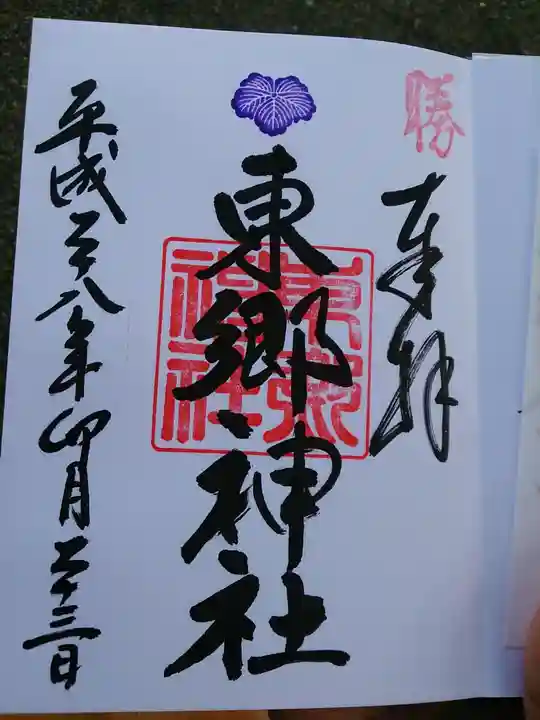 勝
奉拝
東郷神社
東郷神社
平成二十八年卯月二十三日